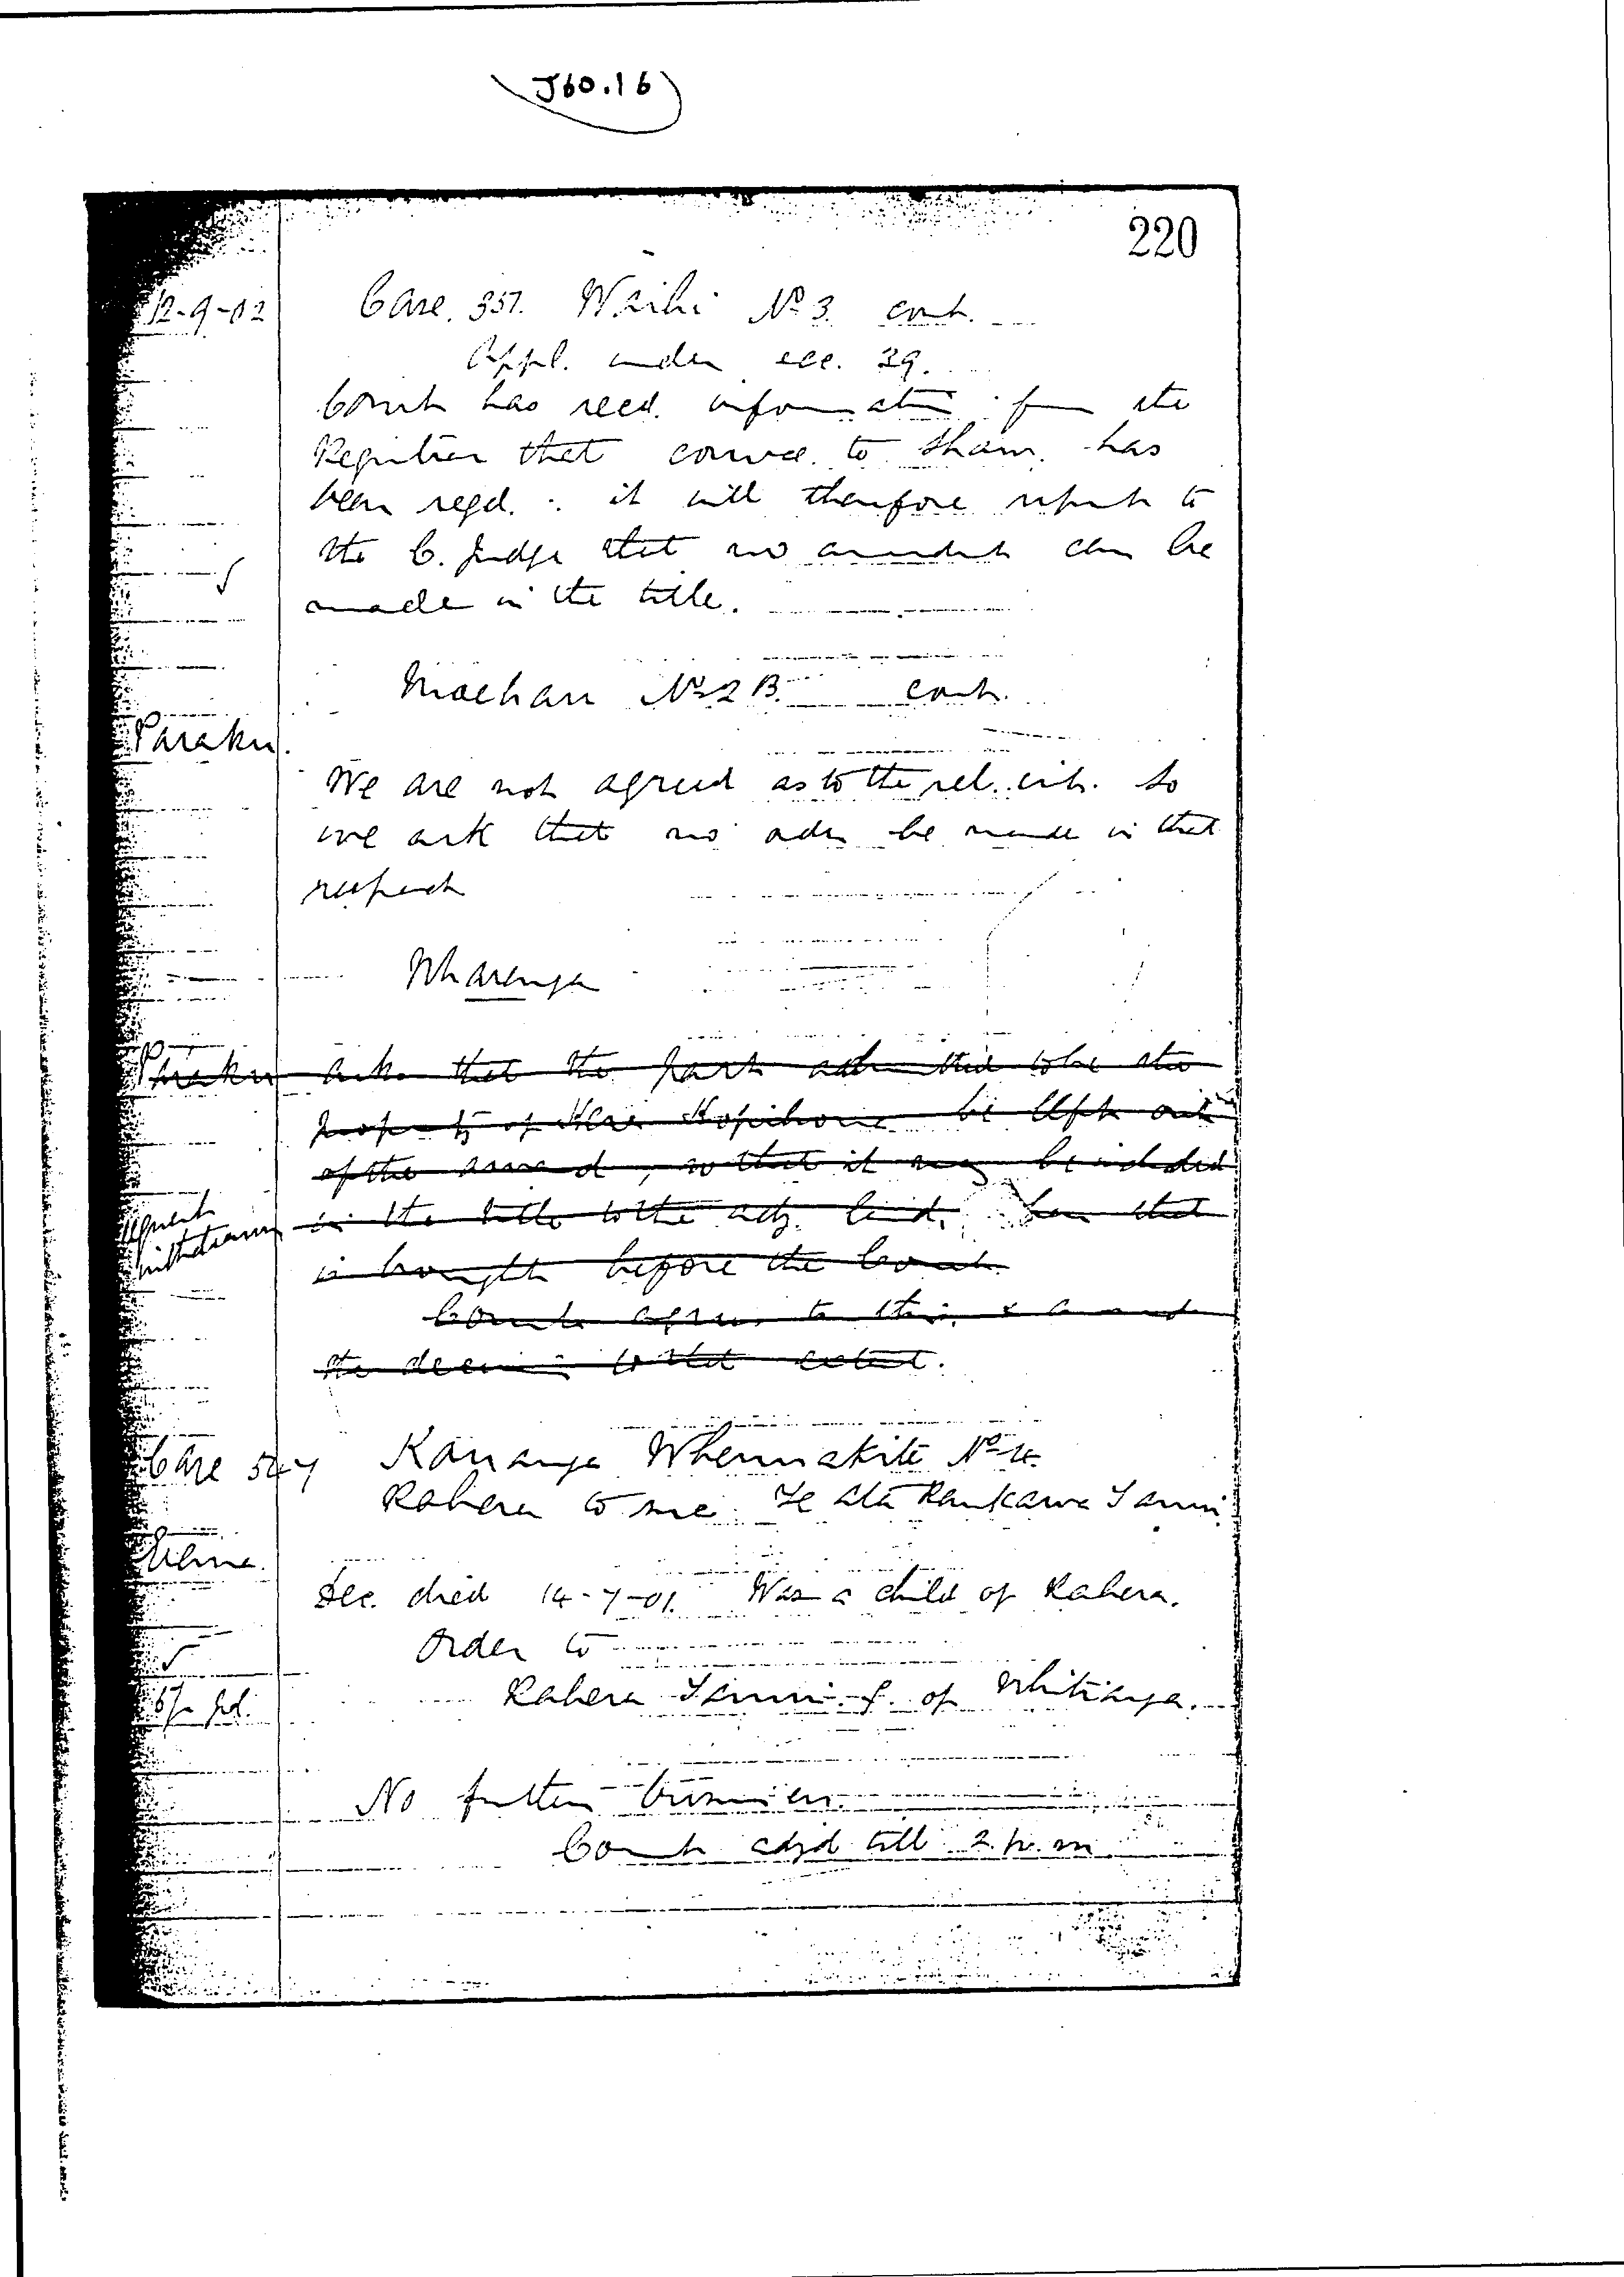 J60.16
220
12-9-02 Case. 357. Waihi No 3. cont.
Appl. under sec. 39.
Court has recd. information from the
Registrar that convce. to Shaw. has
been regd. : it will therefore report to
the C. Judge that no amendt can be
made in the title.
Moehau No 2B. cont.
Paraku.
We are not agreed as to the rel. ints. so
we ask that no order be made in that
respect
Wharenga
Paraku asks that the part admitted to be the
property of Mere Kopihone be left out
of the award, so that it may be included
in the title to the adj. land, when that
is brought before the Court.
request withdrawn
Court agrees to this & amends
the decision to that extent.
Case 547 Kauanga Whenuakite No 4.
Rahera to sue. Te Ata Raukawa Tanui
Dec. died 14-7-01. Was a child of Rahera.
Order to
Rahera Tanui. f. of Whitianga.
No further business.
Court adjd till 2. p.m